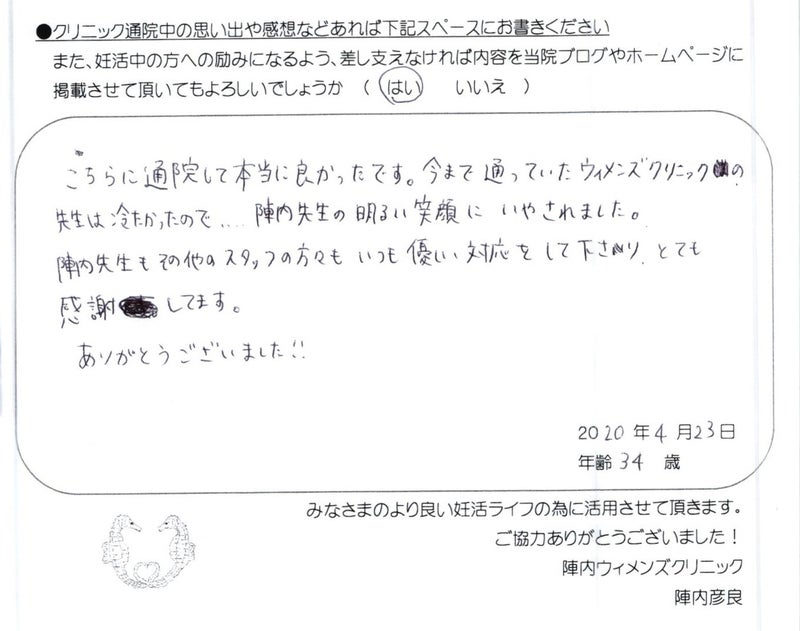 ●クリニック通院中の思い出や感想などあれば下記スペースにお書きください
また、妊活中の方への励みになるよう、差し支えなければ内容を当院ブログやホームページに
掲載させて頂いてもよろしいでしょうか （ はい　いいえ ）
こちらに通院して本当に良かったです。今まで通っていたウィメンズクリニックの
先生は冷たかったので.... 陣内先生の明るい笑顔にいやされました。
陣内先生もその他のスタッフの方々もいつも優しい対応をして下さり、とても
感謝してます。
ありがとうございました!!
2020年4月23日
年齢34歳
みなさまのより良い妊活ライフの為に活用させて頂きます。
ご協力ありがとうございました！
陣内ウィメンズクリニック
陣内彦良